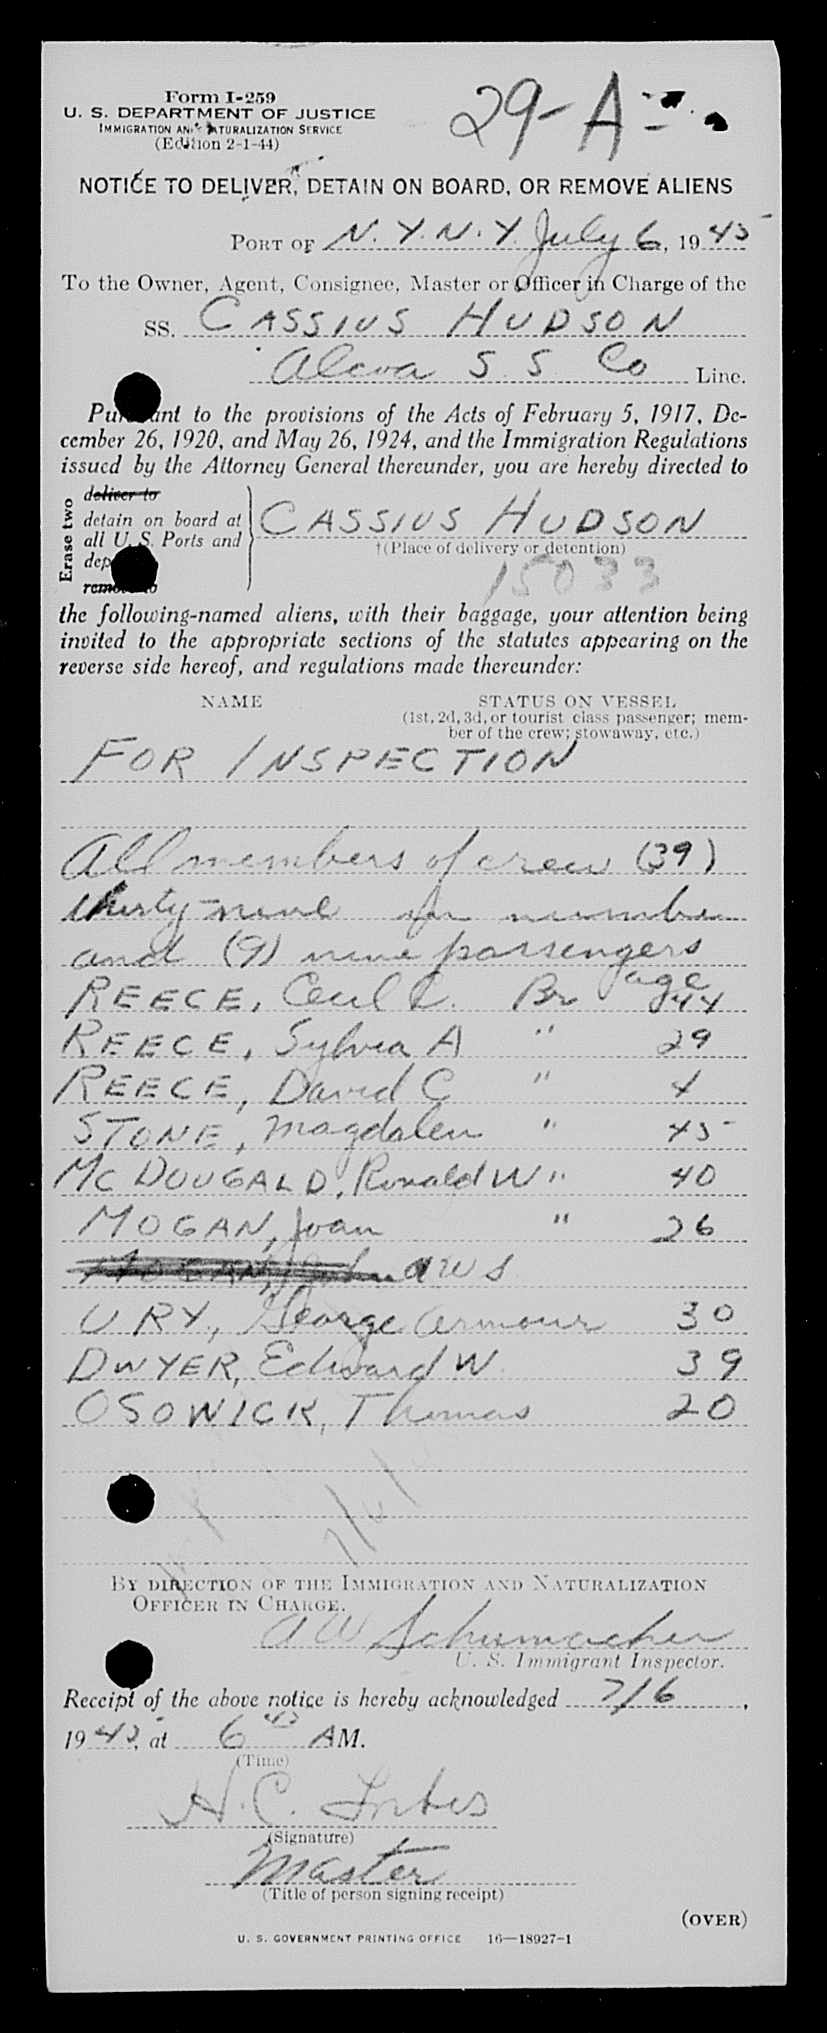 Form I-259
29-A
U. S. DEPARTMENT OF JUSTICE
IMMIGRATION AND NATURALIZATION SERVICE
(Edition 2-1-44)
NOTICE TO DELIVER, DETAIN ON BOARD, OR REMOVE ALIENS
PORT OF N.Y.N.Y. July 6, 1945
To the Owner, Agent, Consignee, Master or Officer in Charge of the
SS. CASSIUS HUDSON
Alcoa S S Co Line.
Pursuant to the provisions of the Acts of February 5, 1917, De-
cember 26, 1920, and May 26, 1924, and the Immigration Regulations
issued by the Attorney General thereunder, you are hereby directed to
Erase two
deliver to
detain on board at
all U. S. Ports and
dep
remove to
CASSIUS HUDSON
†(Place of delivery or detention)
15033
the following-named aliens, with their baggage, your attention being
invited to the appropriate sections of the statutes appearing on the
reverse side hereof, and regulations made thereunder:
NAME STATUS ON VESSEL
(1st, 2d, 3d, or tourist class passenger; mem-
ber of the crew; stowaway, etc.)
FOR INSPECTION
All members of crew (39)
thirty-nine in number
and (9) nine passengers
age
REECE, Cecil C. Br 44
REECE, Sylvia A " 29
REECE, David C " 4
STONE, Magdalen " 45
MC DOUGALD, Ronald W " 40
MOGAN, Joan " 26
MOGAN, aws
URY, George Armour 30
DWYER, Edward W. 39
OSOWICK, Thomas 20
BY DIRECTION OF THE IMMIGRATION AND NATURALIZATION
OFFICER IN CHARGE.
AW Schumacher
U. S. Immigrant Inspector.
Receipt of the above notice is hereby acknowledged 7/6,
1945, at 6 45 AM.
(Time)
H.C.
(Signature)
Master
(Title of person signing receipt)
(OVER)
U. S. GOVERNMENT PRINTING OFFICE 16—18927-1